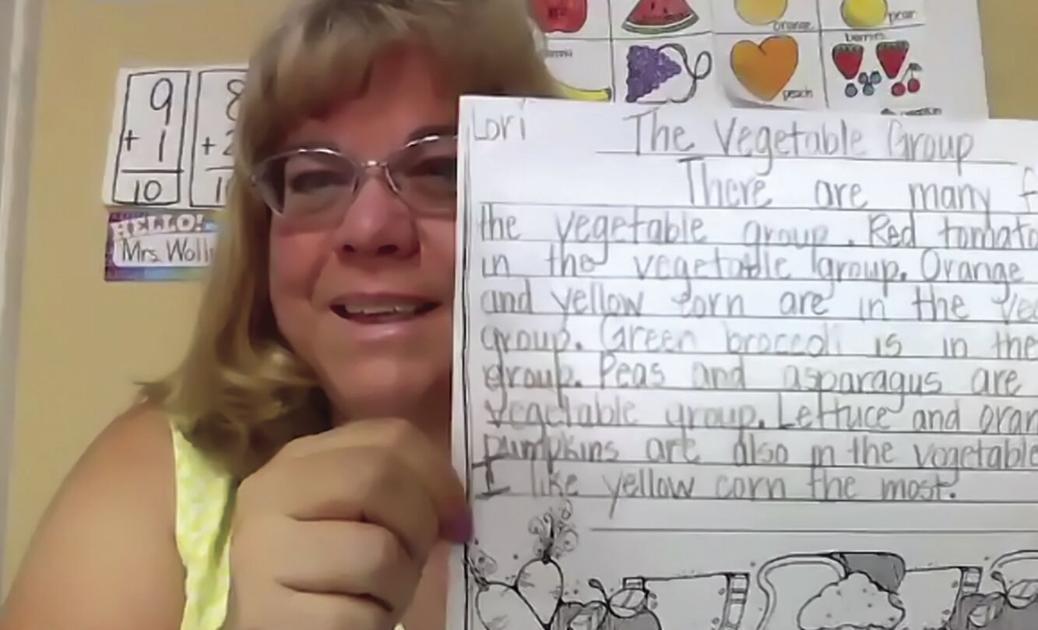 orange
pear
berries
peach
9
+ 1
10
8
+ 2
HELLO!
Mrs. Woll
Lori
The Vegetable Group
There are many f
the vegetable group. Red tomato
in the vegetable group. Orange
and yellow corn are in the ve
group. Green broccoli is in the
group. Peas and asparagus are
vegetable group. Lettuce and oran
pumpkins are also in the vegetable
I like yellow corn the most.